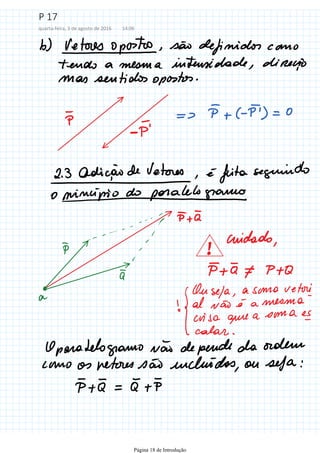 P 17
quarta-feira, 3 de agosto de 2016 14:06
b) Vetores opostos, são definidos como
tendo a mesma intensidade, direção
mas sentidos opostos.
P̄
-P̄'
=> P̄ + (-P̄') = 0
2.3 Adição de Vetores, é feita seguindo
o princípio do paralelogramo
P̄+Q̄
P̄
Q̄
a
! Cuidado,
P̄+Q̄ ≠ P+Q
! Ou seja, a soma vetori
al não é a mesma
coisa que a soma es
calar.
O paralelogramo não depende da ordem
como os vetores são incluídos, ou seja:
P̄+Q̄ = Q̄+P̄
Página 18 de Introdução